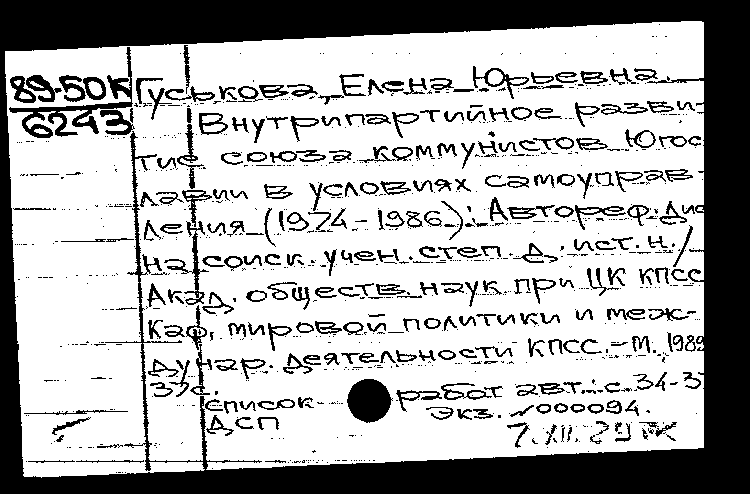 89-50К
6243
Гуськова, Елена Юрьевна.
Внутрипартийное разви-
тие союза коммунистов Югос
лавии в условиях самоуправ-
ления (1974-1986): Автореф. дис
на соиск. учен. степ. д. ист. н./
Акад. обществ. наук при ЦК КПСС
Каф. мировой политики и меж-
дунар. деятельности КПСС.-М., 1989
37с.
Список работ авт.: с. 34-37
ДСП Экз. №000094.
7.XII.89